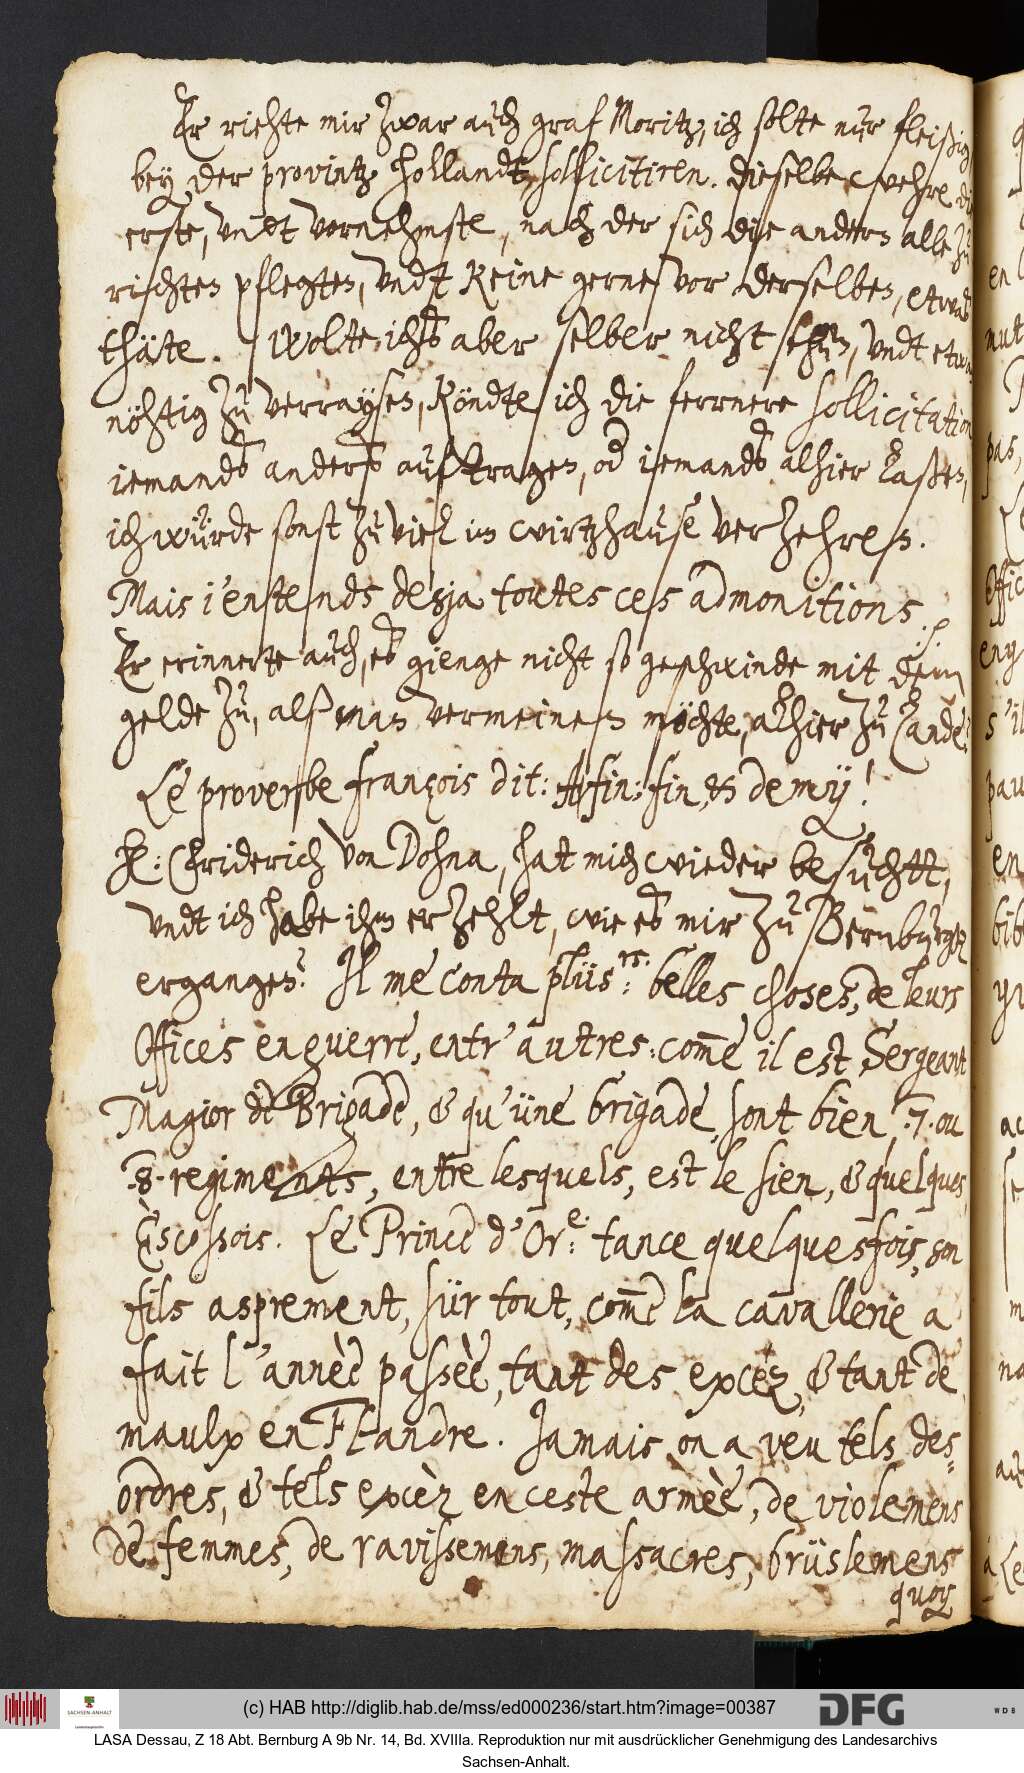 Er riehte mir zwar auch graf Moritz, ich solte nur fleißig
bey der provintz Hollandt, sollicitiren. dieselbe wehre die
erste, undt vornehmste, nach der sich die andern alle zu
richten pflegten, undt keine gerne vor derselben, etwas
thäte. Wolte ichs aber selber nicht thun, undt etwan
nöhtig zu verraysen, köndte ich die fernere sollicitation
iemands anders auftragen, od iemands alhier laßen,
ich würde sonst zu viel im wirtzhause verzehren.
Mais i'entends desja toutes ces admonitions.
Er erinnerte auch, es gienge nicht so geschwinde mit dem
gelde zu, alß man vermeinen möchte, alhier zu Lande.
Le proverbe françois dit: A fin: fin, & demy!
H: Friderich von Dohna, hat mich wieder besuchtt,
undt ich habe ihm erzehlt, wie es mir zu Bernburgk
ergangen. Il me conta plüs:rs. belles choses, de leurs
Offices en guerre, entr'autres: comē il est Sergeant
Magior de Brigade, & qu'üne brigade, sont bien .7. ou
.8. regiments, entre lesquels, est le sien, & quelques
Escossois. Le Prince d'Or:e. tance quelquesfois, son
fils asprement, sür tout, comē la cavallerie a
fait l'annèe passèe, tant des excéz, & tant de
maulx en Flandre. Jamais on a veu tels des=
ordres, & tels excèz en ceste armèe, de violemens
de femmes, de ravissemens, massacres, brüslemens
quoy
(c) HAB http://diglib.hab.de/mss/ed000236/start.htm?image=00387
SACHSEN-ANHALT
DFG
WDB
LASA Dessau, Z 18 Abt. Bernburg A 9b Nr. 14, Bd. XVIIIa. Reproduktion nur mit ausdrücklicher Genehmigung des Landesarchivs
Sachsen-Anhalt.